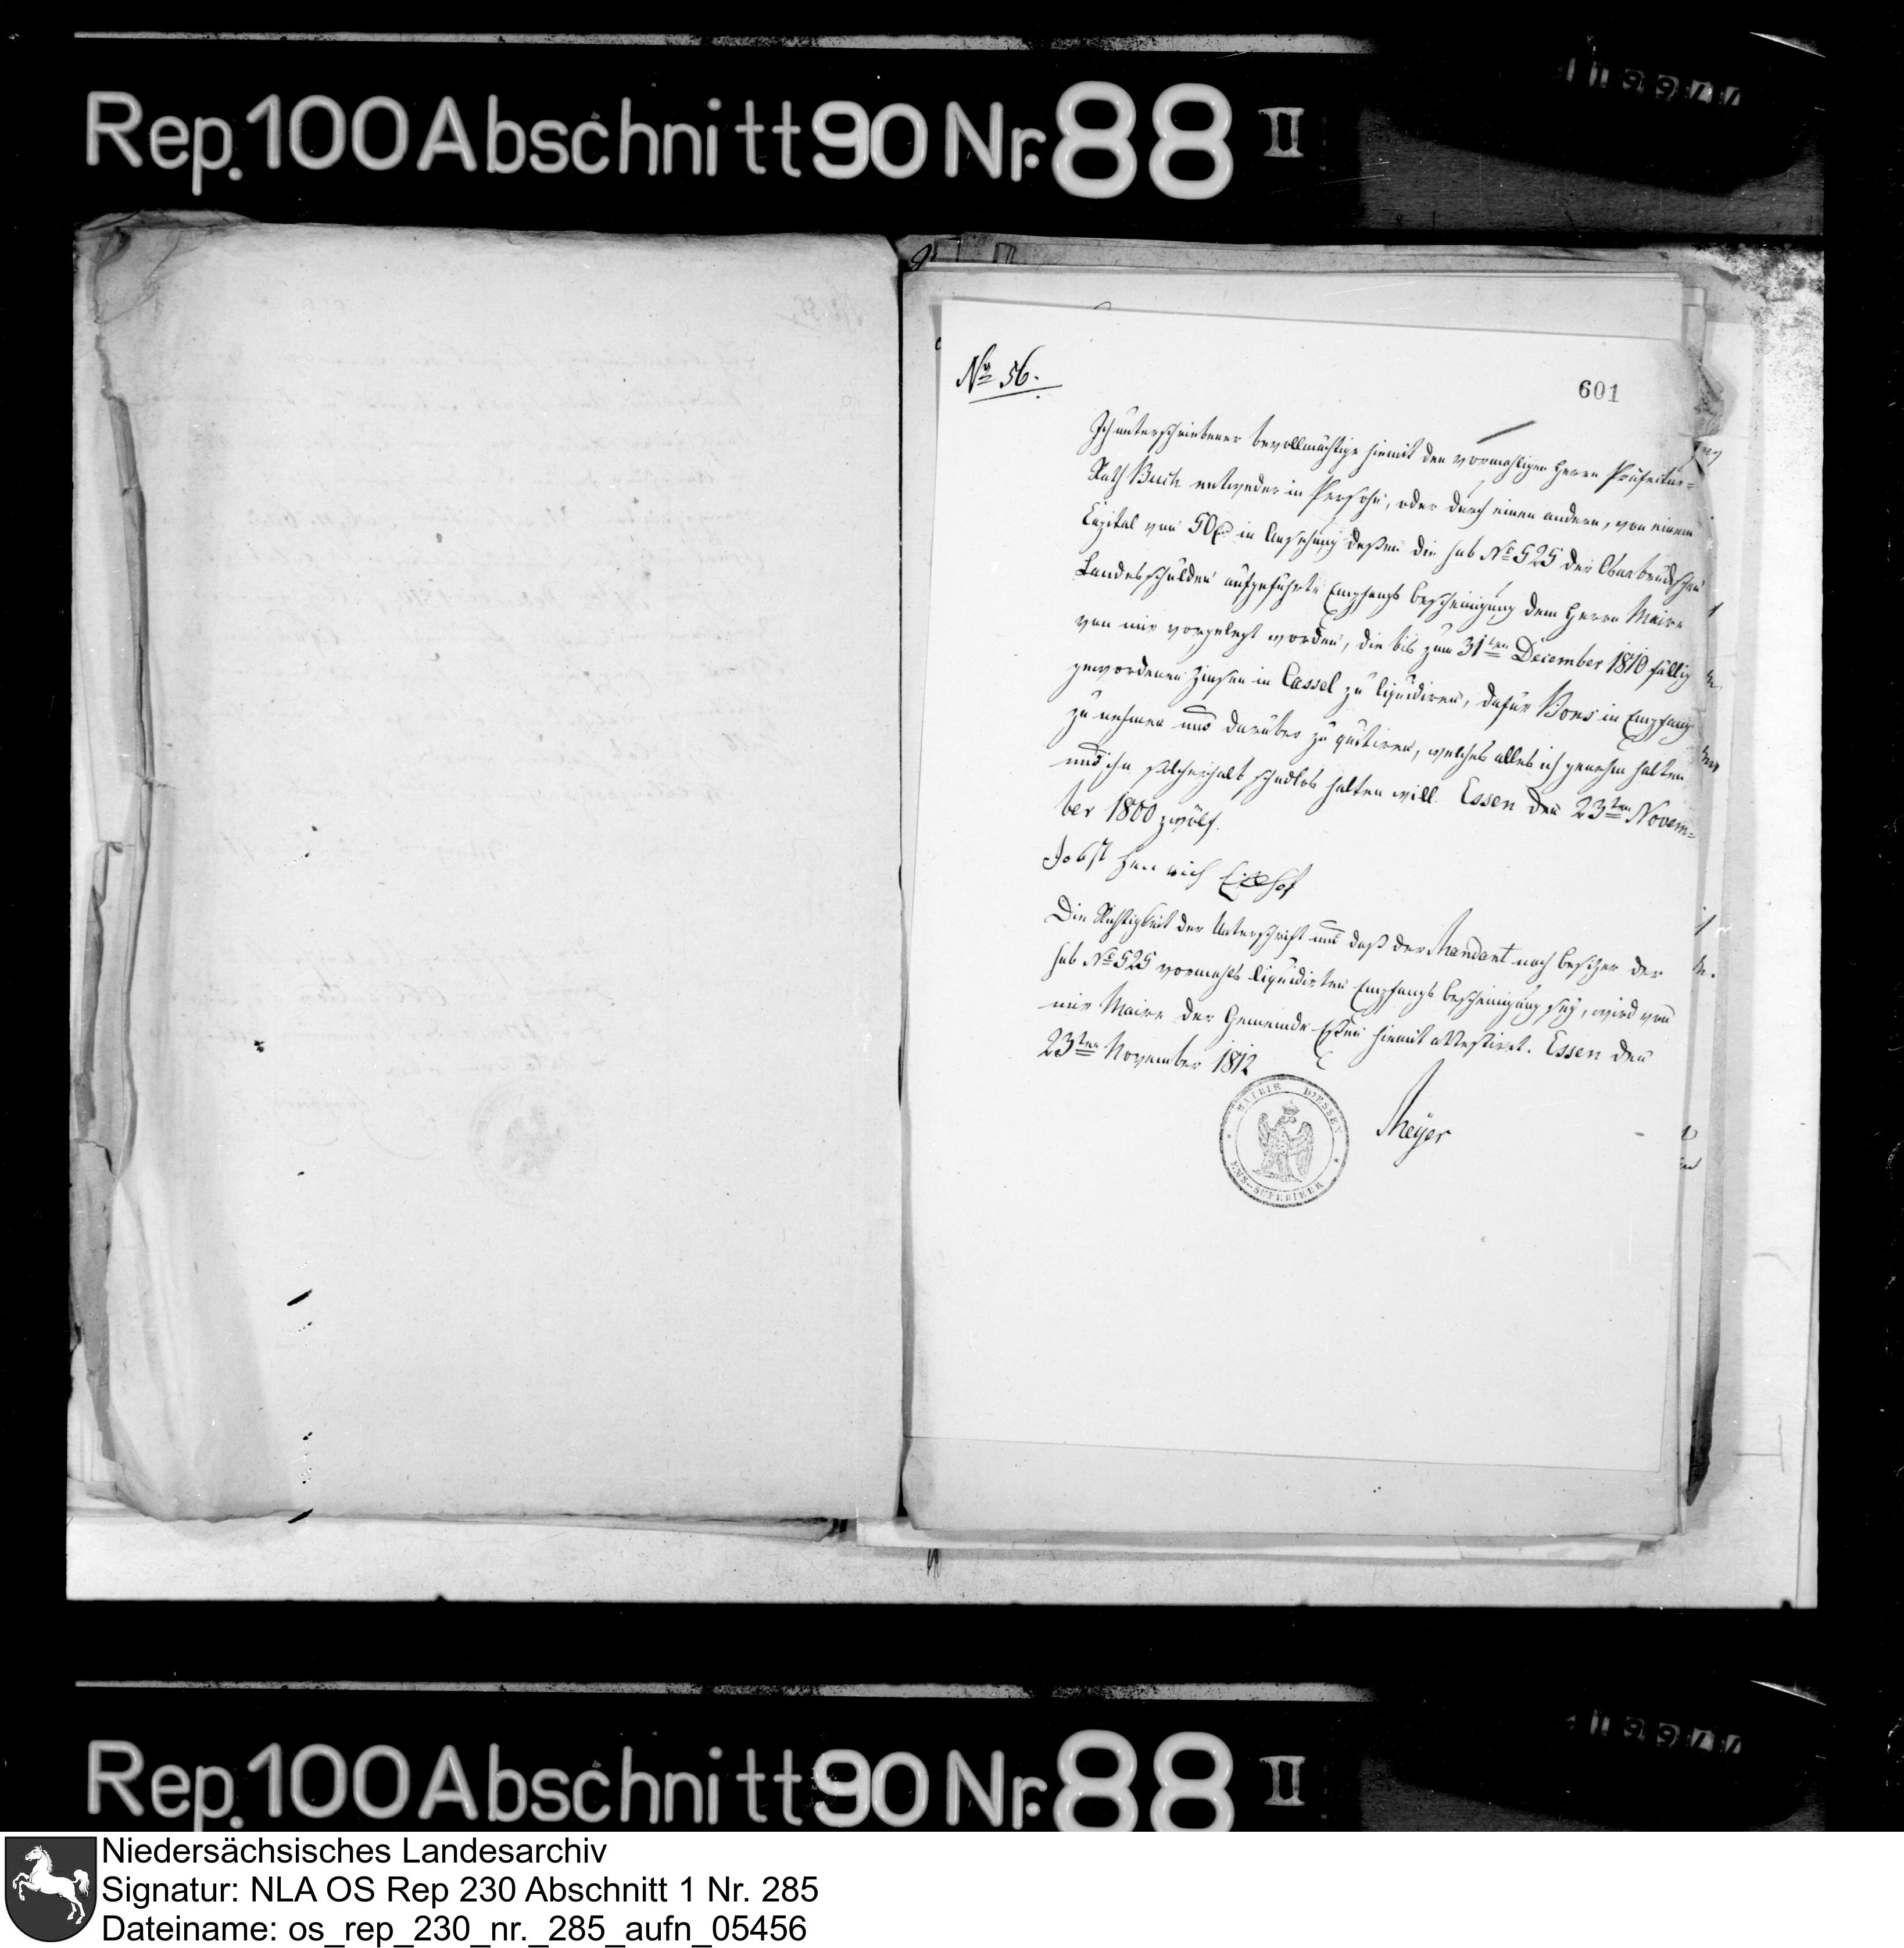 Rep. 100 Abschnitt 90 Nr. 88 II
No 56.
601
Ich unterschriebener bevollmächtige hiemit den vormahligen Herrn Präfectur-
Rath Buch entweder in Persohn, oder durch einen andern, von einem
Capital von 50 in Ansehung deßen die sub No 525 der Osnabrückschen
Landesschulden aufgeführte Empfangs bescheinigung dem Herrn Maire
von mir vorgelegt worden, die bis zum 31ten December 1810 fällig
gewordenen Zinsen in Cassel zu liquidiren, dafür Bons in Empfang
zu nehmen und darüber zu quitiren, welches alles ich genehm halten
und ihn solcherhalb schadlos halten will. Essen den 23ten Novem-
ber 1800 zwölf.
Jobst Henrich
Die Richtigkeit der Unterschrift und daß der Mandant noch besitzer der
sub No 525 vormahls liquidirten Empfangs bescheinigung sey, wird von
mir Maire der Gemeinde Eßen hiemit attestiret. Essen den
23ten November 1812
Meyer
MAIRIE D'ESSEN
EMS-SUPERIEUR
Rep. 100 Abschnitt 90 Nr. 88 II
Niedersächsisches Landesarchiv
Signatur: NLA OS Rep 230 Abschnitt 1 Nr. 285
Dateiname: os_rep_230_nr._285_aufn_05456